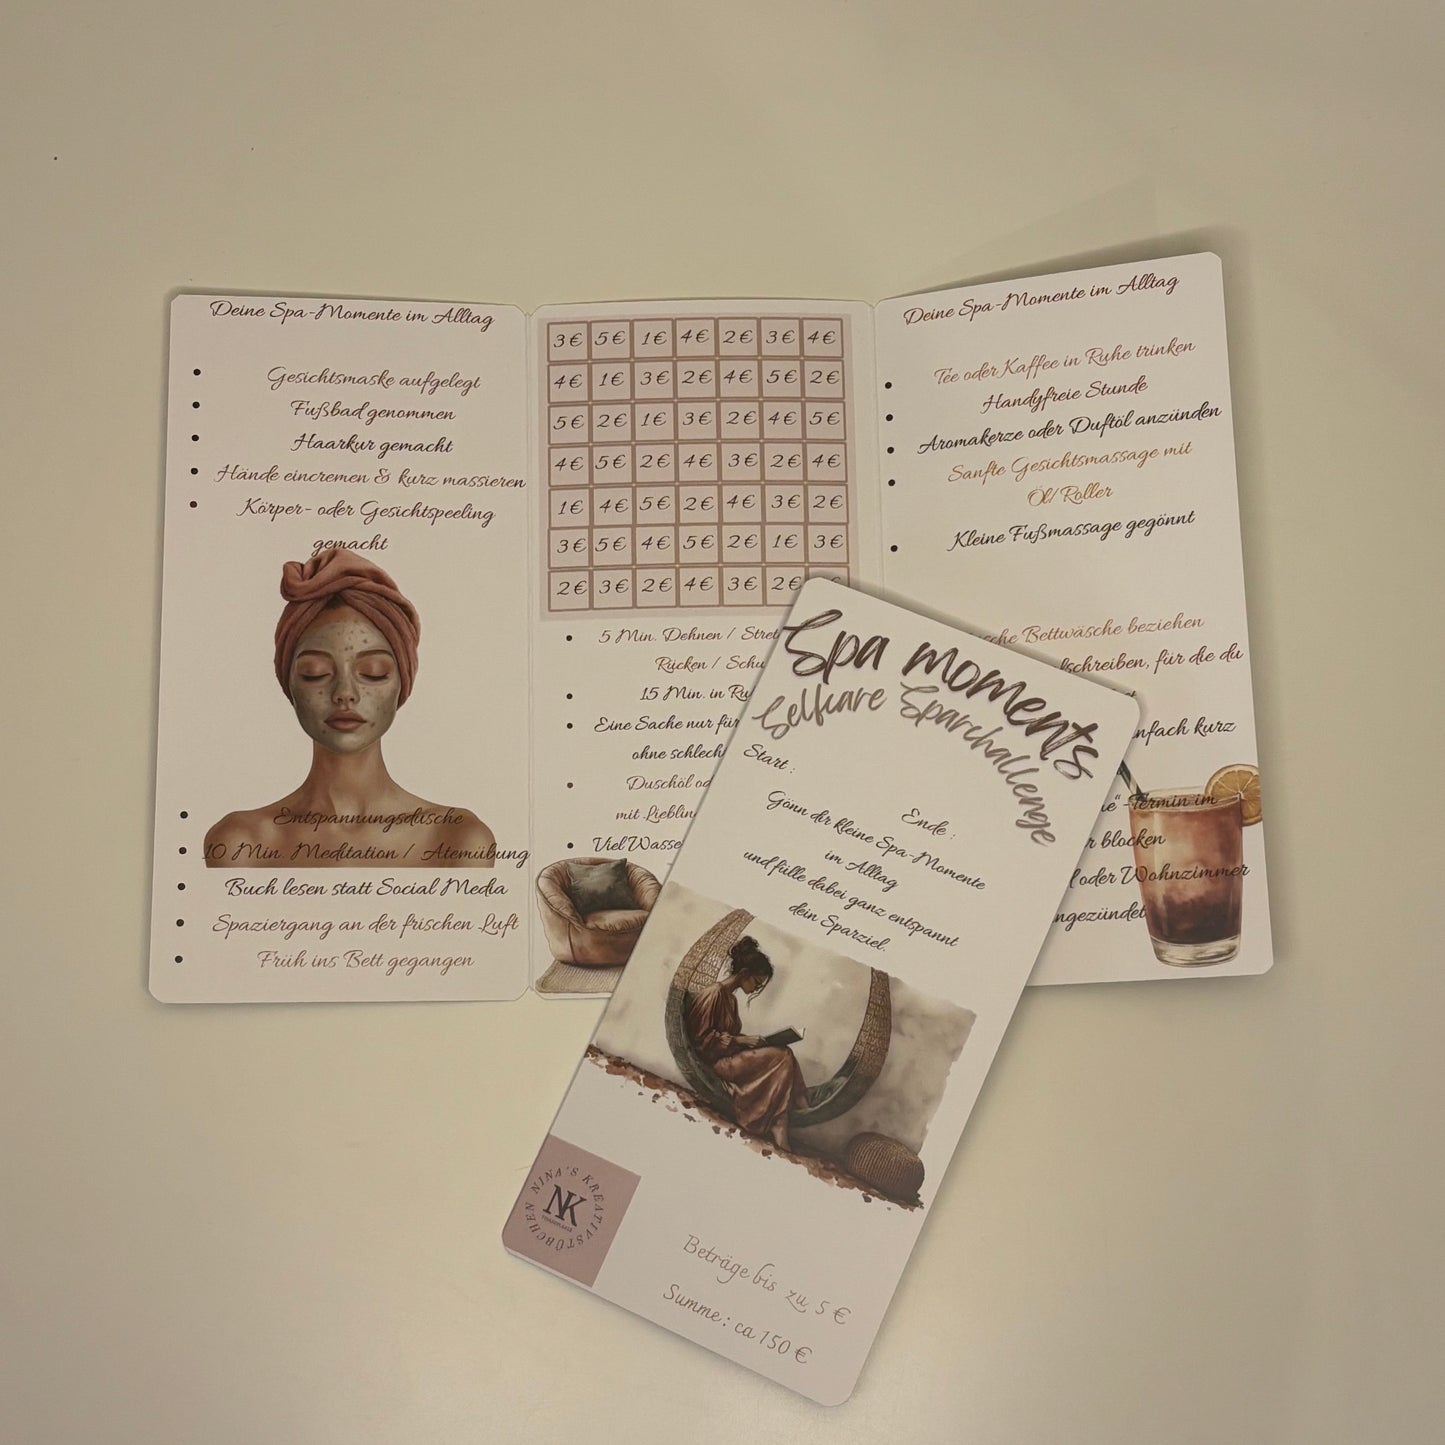 Deine Spa-Momente im Alltag
Gesichtsmaske aufgelegt
Fußbad genommen
Haarkur gemacht
Hände eincremen & kurz massieren
Körper- oder Gesichtspeeling
gemacht
Entspannungsdusche
10 Min. Meditation / Atemübung
Buch lesen statt Social Media
Spaziergang an der frischen Luft
Früh ins Bett gegangen
3€ 5€ 1€ 4€ 2€ 3€ 4€
4€ 1€ 3€ 2€ 4€ 5€ 2€
5€ 2€ 1€ 3€ 2€ 4€ 5€
4€ 5€ 2€ 4€ 3€ 2€ 4€
1€ 4€ 5€ 2€ 4€ 3€ 2€
3€ 5€ 4€ 5€ 2€ 1€ 3€
2€ 3€ 2€ 4€ 3€ 2€
5 Min. Dehnen /
Rücken /
15 Min. in
Eine Sache nur für
ohne
Duschöl
mit
Viel
Deine Spa-Momente im Alltag
Tee oder Kaffee in Ruhe trinken
Handyfreie Stunde
Aromakerze oder Duftöl anzünden
Sanfte Gesichtsmassage mit
Öl/ Roller
Kleine Fußmassage gegönnt
Bettwäsche beziehen
für die du
kurz
Termin im
blocken
oder Wohnzimmer
Spa moments
Selfcare Sparchallenge
Start :
Ende :
Gönn dir kleine Spa-Momente
im Alltag
und fülle dabei ganz entspannt
dein Sparziel.
NINA'S KREATIVSTÜBCHEN
NK
Beträge bis zu 5 €
Summe : ca 150 €